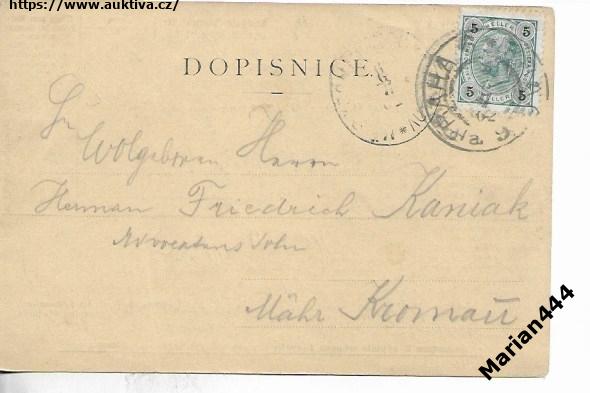 https://www.auktiva.cz/
DOPISNICE.
5 5
5 5
HELLER HELLER
PRAHA
Sr Wolgeboren Herrn
Herman Friedrich Kaniak
Advocatens Sohn
Mähr Kromau
Marian444